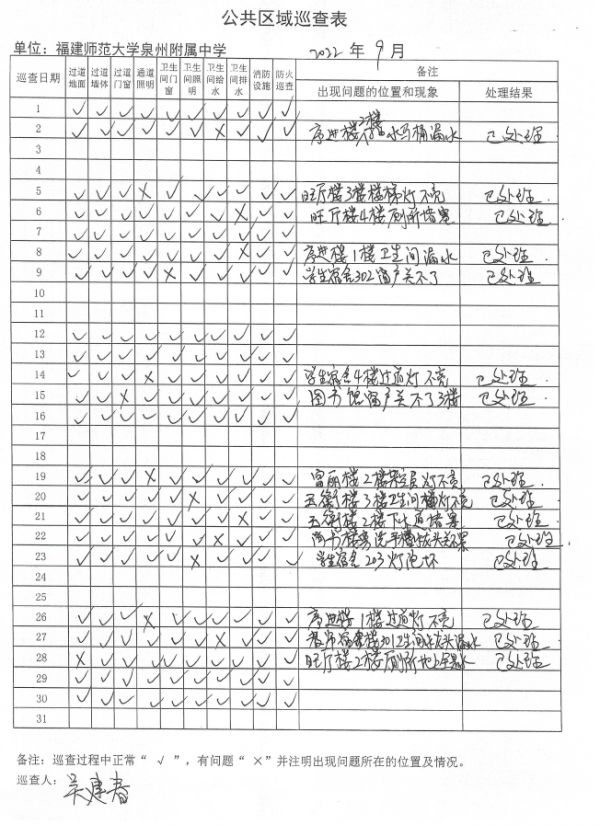 公共区域巡查表
单位：福建师范大学泉州附属中学 2022年 9月
巡查日期 过道地面 过道墙体 过道门窗 通道照明 卫生间门窗 卫生间照明 卫生间给水 卫生间排水 消防设施 防火巡查 备注
出现问题的位置和现象 处理结果
1 ✓ ✓ ✓ ✓ ✓ ✓ ✓ ✓ ✓ ✓
2 ✓ ✓ ✓ ✓ ✓ ✓ × ✓ ✓ ✓ 楼 水马桶漏水 已处理
3
4
5 ✓ ✓ ✓ × ✓ ✓ ✓ ✓ ✓ ✓ 旺厅楼3楼楼梯灯不亮 已处理.
6 ✓ ✓ ✓ ✓ ✓ ✓ ✓ × ✓ ✓ 旺厅楼4楼厕所堵塞 已处理.
7 ✓ ✓ ✓ ✓ ✓ ✓ ✓ ✓ ✓ ✓
8 ✓ ✓ ✓ ✓ ✓ ✓ ✓ × ✓ ✓ 楼1楼卫生间漏水 已处理.
9 ✓ ✓ ✓ ✓ × ✓ ✓ ✓ ✓ ✓ 学生宿舍302窗户关不了 已处理.
10
11
12 ✓ ✓ ✓ ✓ ✓ ✓ ✓ ✓ ✓ ✓
13 ✓ ✓ ✓ ✓ ✓ ✓ ✓ ✓ ✓ ✓
14 ✓ ✓ ✓ × ✓ ✓ ✓ ✓ ✓ ✓ 学生宿舍4楼过道灯不亮 已处理.
15 ✓ ✓ × ✓ ✓ ✓ ✓ ✓ ✓ ✓ 图书馆窗户关不了3楼 已处理.
16 ✓ ✓ ✓ ✓ ✓ ✓ ✓ ✓ ✓ ✓
17
18
19 ✓ ✓ ✓ × ✓ ✓ ✓ ✓ ✓ ✓ 富丽楼2楼 灯不亮 已处理.
20 ✓ ✓ ✓ ✓ ✓ × ✓ ✓ ✓ ✓ 五衡楼3楼卫生间 灯不亮 已处理.
21 ✓ ✓ ✓ ✓ ✓ ✓ ✓ × ✓ ✓ 五衡楼2楼下水道堵塞 已处理.
22 ✓ ✓ ✓ ✓ ✓ ✓ × ✓ ✓ ✓ 图书楼 洗手 龙头 已处理.
23 ✓ ✓ ✓ ✓ ✓ × ✓ ✓ ✓ ✓ 学生宿舍203灯泡坏 已处理.
24
25
26 ✓ ✓ ✓ × ✓ ✓ ✓ ✓ ✓ ✓ 楼1楼过道灯不亮 已处理.
27 ✓ ✓ ✓ ✓ ✓ ✓ × ✓ ✓ ✓ 教师宿舍楼 卫生间水龙头漏水 已处理
28 × ✓ ✓ ✓ ✓ ✓ ✓ ✓ ✓ ✓ 旺厅楼2楼厕所地 水 已处理
29 ✓ ✓ ✓ ✓ ✓ ✓ ✓ ✓ ✓ ✓
30 ✓ ✓ ✓ ✓ ✓ ✓ ✓ ✓ ✓ ✓
31
备注：巡查过程中正常“ √ ”，有问题“ ×”并注明出现问题所在的位置及情况。
巡查人：吴建春